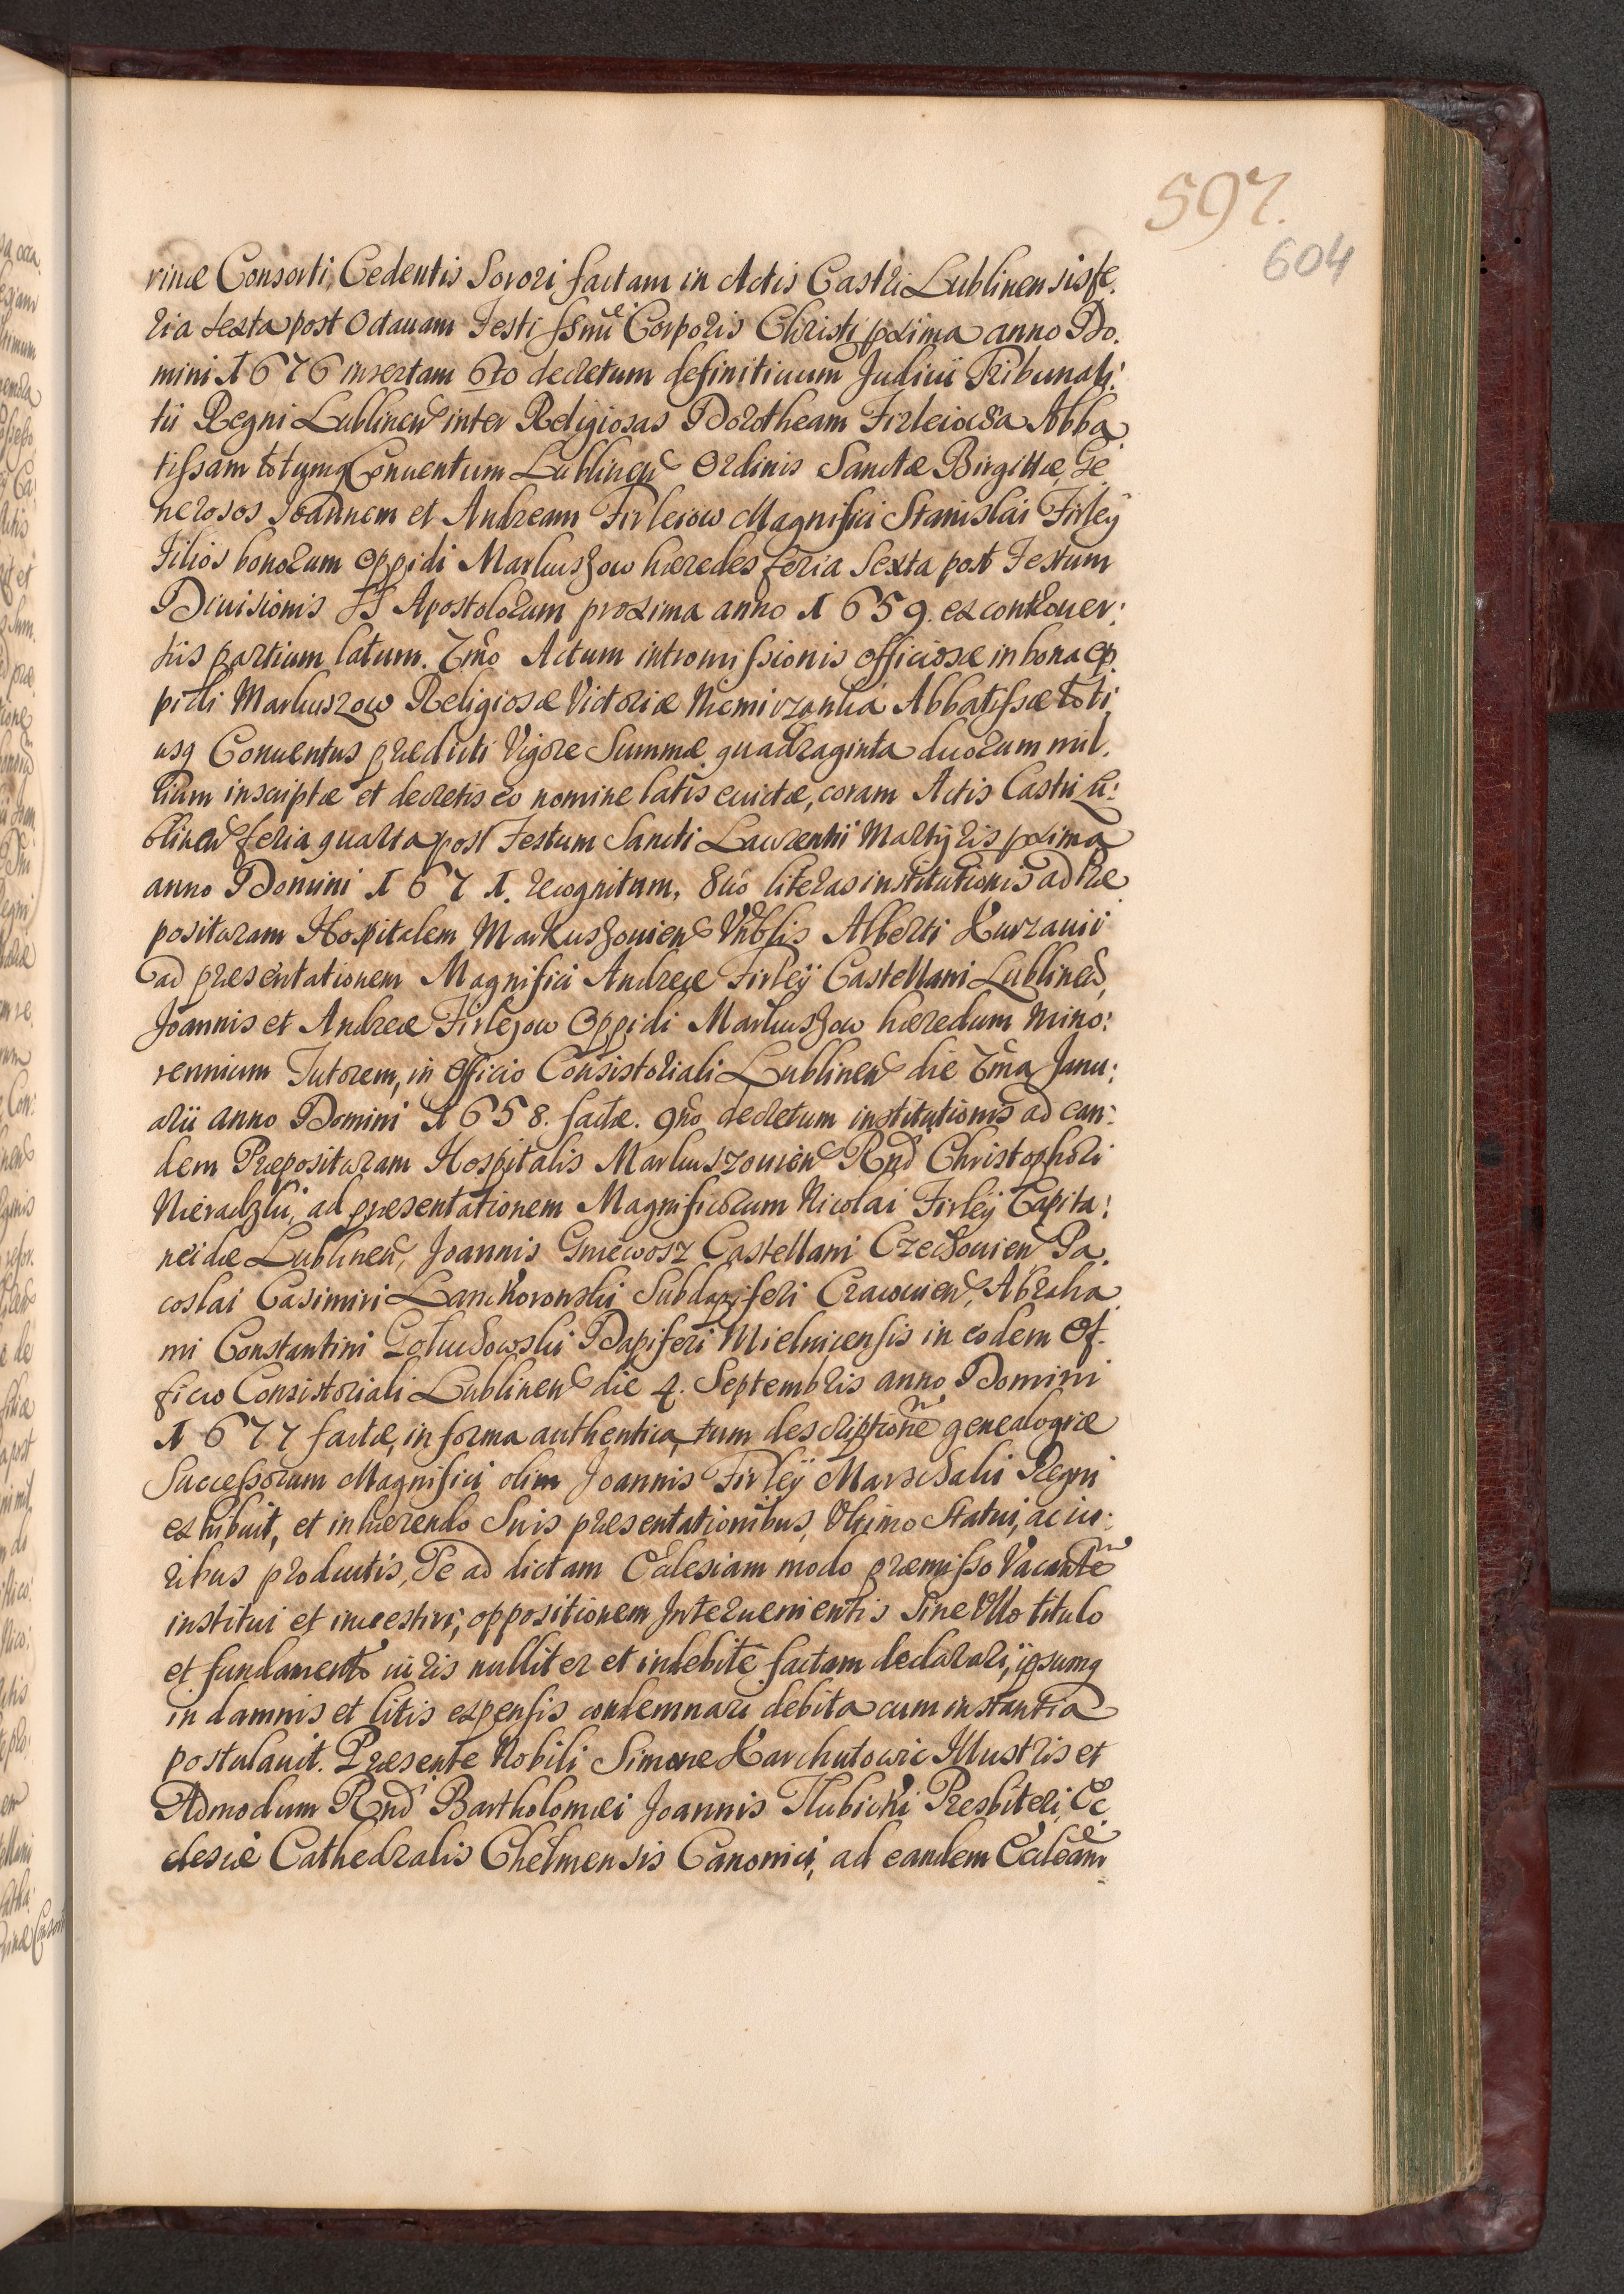 597.
604
rinæ Consorti, Cedentis Sorori factam in Actis Castri Lublinensis fe.
ria sexta post Octauam Festi SSmi Corporis Christi pxima anno Do.
mini 1676 insertam 6to decretum definitiuum Judicii Tribunali:
tii Regni Lublinen inter Religiosas Dorotheam Firleiowa Abba
tissam totumq Conuentum Lublinen Ordinis Sanctæ Birgittæ, Ge
nerosos Joannem et Andream Firleiow Magnifici Stanislai Firleÿ
Filios bonorum Oppidi Markuszow hæredes feria Sexta post Festum
Diuisionis SS Apostolorum proxima anno 1659. ex controuer:
siis partium latum. 7mo Actum intromissionis officiosæ in bona op
pidi Markuszow Religiosæ Victoriæ Niemirzanka Abbatissæ toti
usq Conuentus prædicti Vigore Summæ quadraginta duorum mil.
lium inscriptæ et decretis eo nomine latis euictæ, coram Actis Castri Lu:
blinen feria quarta post Festum Sancti Laurentii Martÿris pxima
anno Domini 1671. recognitum, 8uo literas institutionis ad Præ
posituram Hospitalem Markuszouien Vnblis Alberti Kurzauii
ad præsentationem Magnifici Andreæ Firleÿ Castellani Lublinen,
Joannis et Andreæ Firlejow Oppidi Markuszow hæredum mino:
rennium Tutorem, in Officio Consistoriali Lublinen die 7ma Janu:
arii anno Domini 1658. factæ. 9no decretum institutionis ad ean:
dem Præposituram Hospitalis Markuszouien Rnd Christophori
Nieradzki, ad præsentationem Magnificorum Nicolai Firleÿ Capita:
neidæ Lublinen, Joannis Gniewosz Castellani Czechouien Pa.
coslai Casimiri Lanckoronski Subdapiferi Cracouien, Abraha
mi Constantini Goluchowski Dapiferi Mielnicensis in eodem Of.
ficio Consistoriali Lublinen die 4. Septembris anno Domini
1677 factæ, in forma authentica, tum descriptionem genealogiæ
Successorum Magnifici olim Joannis Firleÿ Marschalii Regni
exhibuit, et inhærendo Suis præsentationibus, Vltimo Statui, ac iu:
ribus productis, Se ad dictam Ecclesiam modo præmisso Vacantem
institui et inuestiri, oppositionem Interuenientis Sine Vllo titulo
et fundamento iuris nulliter et indebite factam declarari, ipsumq
in damnis et litis expensis condemnari debita cum instantia
postulauit. Præsente Nobili Simone Karchutowic Illustris et
Admodum Rnd Bartholomæi Joannis Hlubicki Presbiteri, Ec
clesiæ Cathedralis Chelmensis Canonici, ad eandem Eccleam